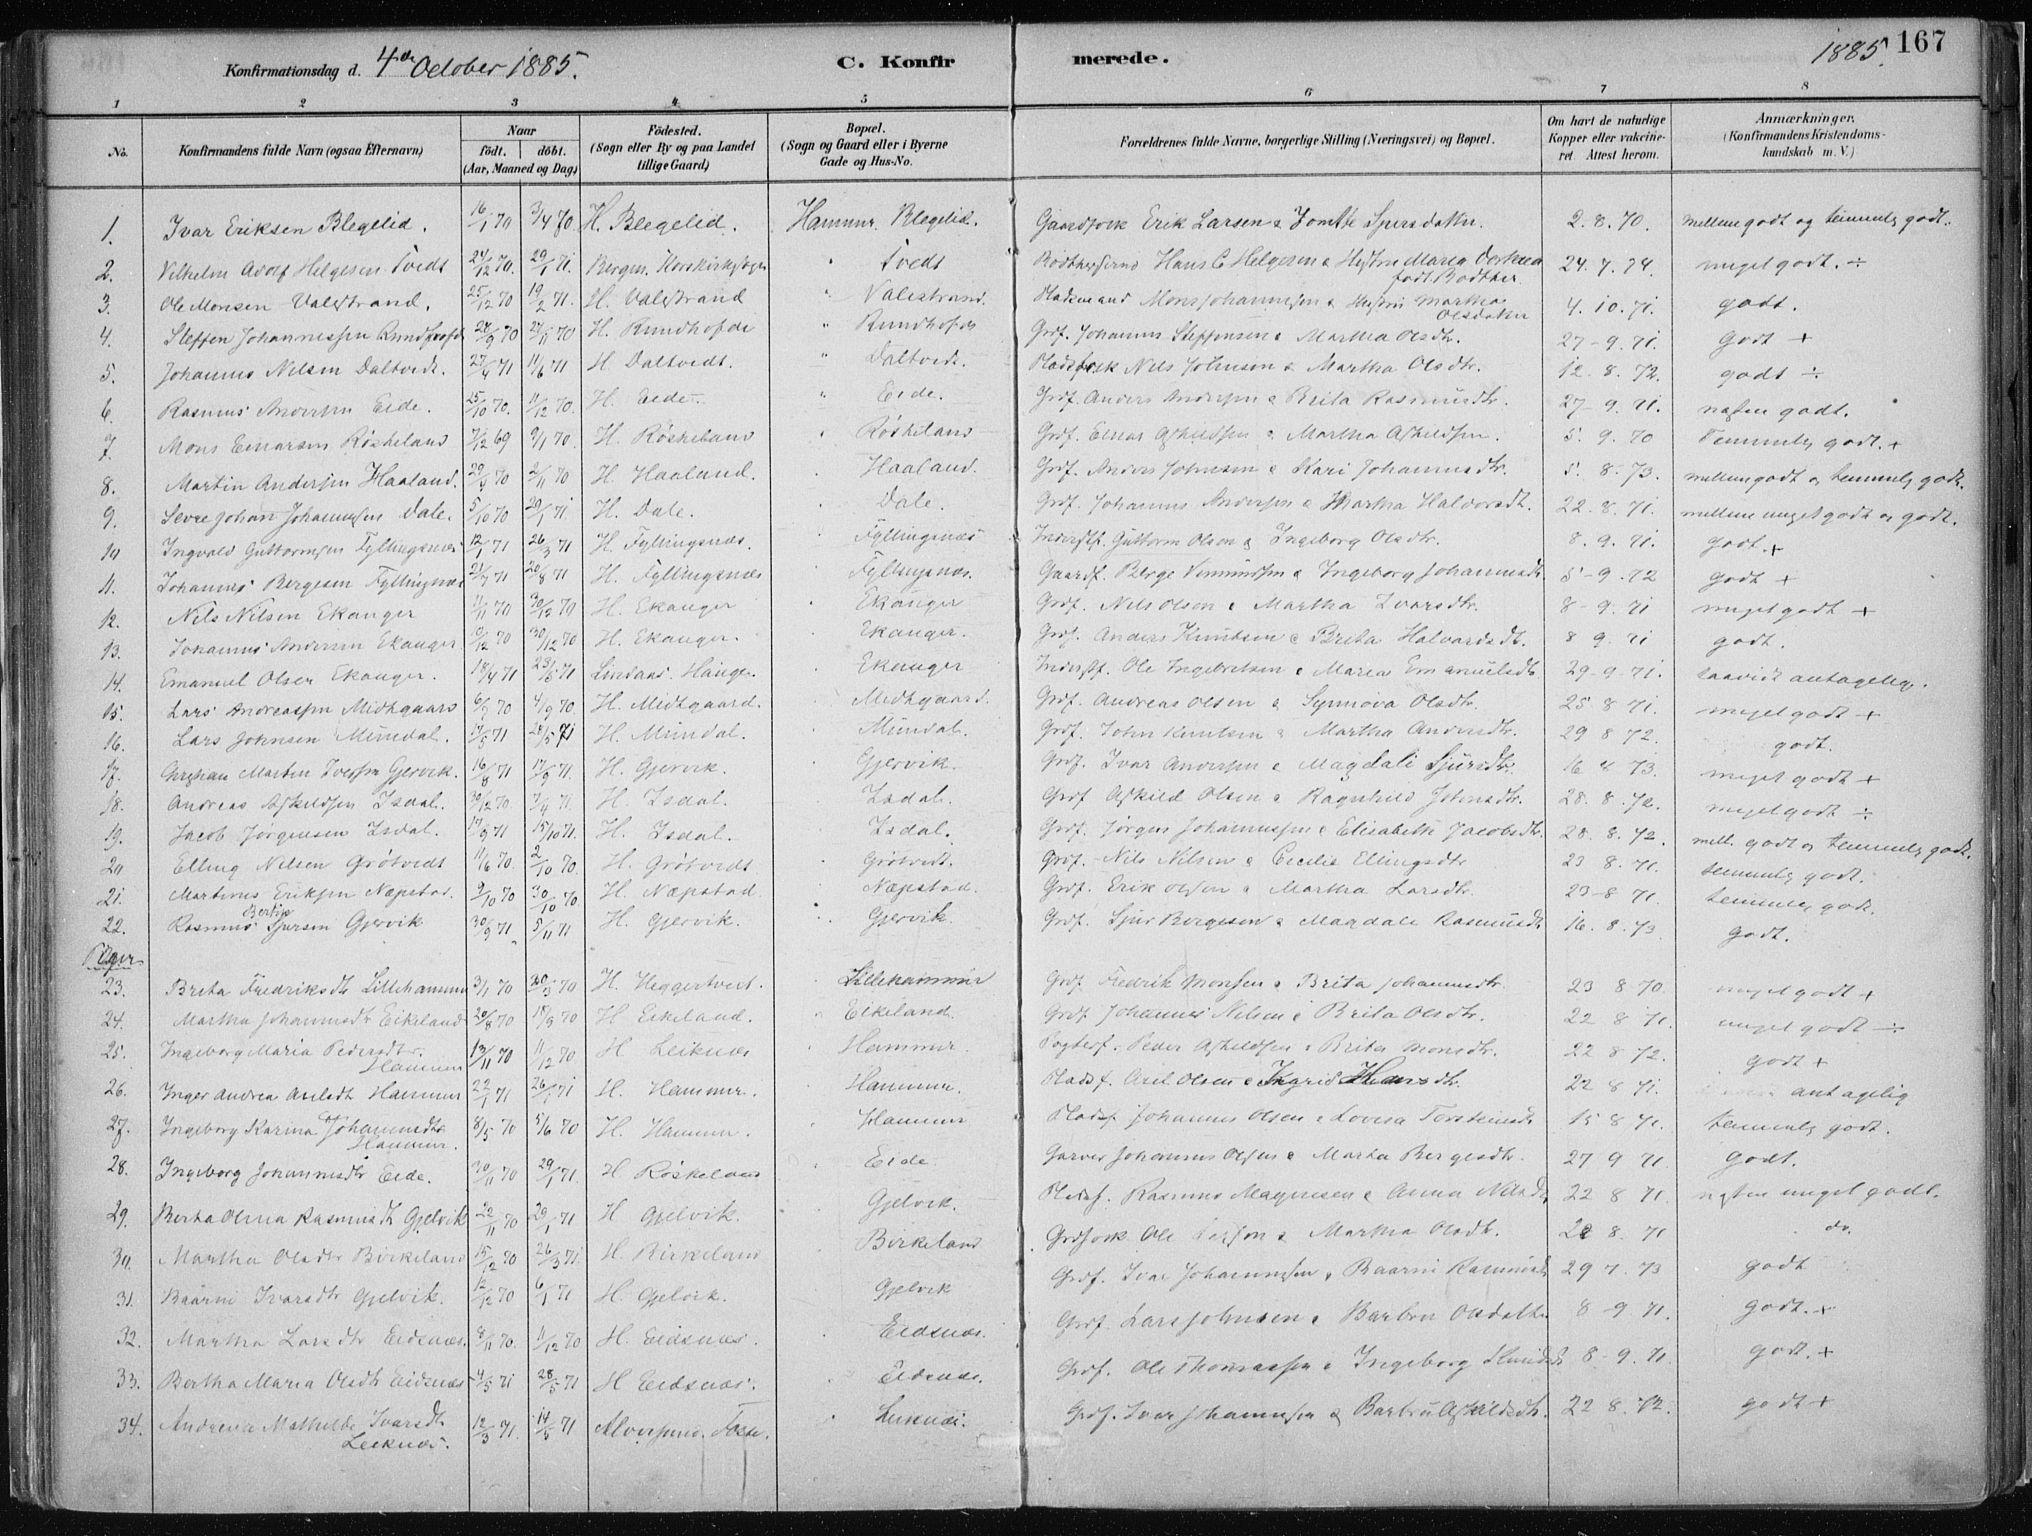 Konfirmationsdag d. 4de October 1885. C. Konfir merede. 1885. 167
1 2 3 4 5 6 7 8
No. Konfirmandens fulde Navn (ogsaa Efternavn) Naar födt. döbt. (Aar, Maaned og Dag) Födested. (Sogn eller By og paa Landet tillige Gaard) Bopæl. (Sogn og Gaard eller i Byerne Gade og Hus-No. Forældrenes fulde Navne, borgerlige Stilling (Næringsvei) og Bopæl. Om havt de naturlige Kopper eller vakcineret. Attest herom. Anmærkninger. (Konfirmandens Kristendomskundskab m. V.)
1. Ivar Eriksen Blegelid. 16/1 70 3/4 70 H. Blegelid. Hammer Blegelid. Gaardfolk Erik Larsen & 2. 8. 70. mellem godt og temmelig godt.
2. Vilhelm Adolf Helgesen Tvedt 24/12 70. 29/1 71. Bergen. Tvedt Hans C Helgesen & Hustru Maren født Bødtker 24. 7. 74. meget godt. ÷
3. Ole Monsen Valestrand. 25/12 70 19/2 71. H. Valestrand " Valestrand. Pladsmand Mons Johannessen & Hustru Martha Olsdatter 4. 10. 71. godt.
4. Steffen Johannessen Rundhofde 24/9 70 27/11 70 H. Rundhofde " Rundhofde Grdf. Johannes Steffensen & Martha Olsdtr. 27-9. 71. Godt +
5. Johannes Nilsen Daltvedt. 27/4 71 11/6 71 H Daltvedt. " Daltvedt. Pladsfolk Nils Johnsen & Martha Olsdtr. 12. 8. 72. godt ÷
6. Rasmus Andersen Eide. 25/10 70. 11/12 70. H. Eide " Eide. Grdf. Anders Andersen & Brita Rasmusdtr. 27-9. 71. næsten godt.
7. Mons Einarsen Röskeland 7/12 69 9/1 70. H. Röskeland " Röskeland Grdf. Einar Askildsen & Martha Askildsen. 5. 9. 70 Temmelig godt. +
8. Martin Andersen Haaland. 29/9 70 2/11 70 H. Haaland. Haaland. Grdf. Anders Johnsen & Kari Johannesdtr. 5. 8. 73. mellem godt og temmelig godt.
9. Sevre Johan Johannessen Dale. 5/10 70 29/1 71. H. Dale. Dale. Grdf. Johannes Andersen & Martha Haldorsdt. 22. 8. 71. mellem meget godt og godt.
10 Ingvald Guttormsen Fyllingsnæs 12/1 71 26/3 71 H. Fyllingsnæs. Fyllingsnæs Inderstf. Guttorm Olsen & Ingeborg Olsdtr. 8. 9. 71. godt. +
11. Johannes Børgesen Fyllingsnæs 21/7 71 20/8 71 H. Fyllingsnæs Fyllingsnæs. Gaardf. Børge & Ingeborg Johannesdt. 5-9. 72 godt +
12. Nils Nilsen Ekanger 1/11 70 30/12 70 H. Ekanger Ekanger Grdf. Nils Olsen & Martha Ivarsdtr. 8-9. 71 meget godt +
13. Johannes Andersen Ekanger 10/12 70 30/12 70 H. Ekanger. Ekanger. Grdf. Anders Knutsen & Brita Halvardsdt. 8 9. 71 godt.
14. Emanuel Olsen Ekanger. 18/4 71 29/5 71 Lindaas. Ekanger Inderstf. Ole Ingebretsen & Maria Emanuelsdt. 29-9-71. saavidt antagelig.
15. Lars Andreassen Midtgaard 6/7 70 4/9 70 H. Midtgaard. Midtgaard. Grdf. Andreas Olsen & Synnöva Olsdtr. 25 8 71. meget godt +
16. Lars Johnsen Mundal. 17/5 71 28/5 71 H. Mundal. Mundal. Grdf. John Knutsen & Martha Andersdtr. 29 8 72. godt.
17. Christian Martin Iversen Gjervik. 16/8 71 17/9 71. H. Gjervik. Gjervik. Grdf. Ivar Andersen & Magdali Sjursdtr. 16 4 73. meget godt +
18. Andreas Askildsen Isdal. 30/12 70 7/4 71. H. Isdal. Isdal. Grdf Askild Olsen & Ragnhild Johnsdtr. 28. 8. 72. meget godt ÷
19. Jacob Jörgensen Isdal. 17/9 71 15/10 71. H. Isdal. Isdal. Grdf. Jörgen Johannessen & Elisabeth Jacobsdtr. 28. 8. 72. mell. godt og temmelig godt.
20 Elling Nilsen Grötvedt 11/6 70. 2/10 70. H. Grötvedt Grötvedt. Grdf. Nils Nilsen & Cecilie Ellingsdtr 23 8. 71. temmelig godt.
21. Martinus Eriksen Næpstad. 9/10 70 30/10 70 H. Næpstad. Næpstad. Grdf. Erik Olsen & Martha Larsdtr. 23-8 71. temmelig godt.
22. Rasmus Bertin Sjursen Gjervik 30/9 71 5/11 71 H. Gjervik. Gjervik. Grdf. Sjur Börgesen & Magdali Rasmusdt 16. 8. 73 Godt.
Piger
23. Brita Fredriksdtr Lillehammer 3/1 70 20/3 70 H. Heggertveit. Lillehammer Grdf. Fredrik Monsen & Brita Johannesdtr. 23 8 70. meget godt +
24. Martha Johannesdtr Eikeland 20/8 70 18/9 70 H Eikeland. " Eikeland. Grdf. Johannes Nilsen & Brita Olsdtr. 22 8 71. meget godt ÷
25. Ingeborg Maria Pedersdtr. Hammer 13/11 70 11/12 70 H Leiknæs Hammer Peder Askildsen & Brita Monsdtr. 22 8 72. godt +
26. Inger Andrea Arildt Hammer 22/1 71 26/1 71 H. Hammer. Hammer. Pladsf. Aril Olsen & Ingrid Hansdtr. 22 8 71. antagelig
27. Ingeborg Karina Johannesdtr. Hammer. 8/5 70 5/6 70 H. Hammer. Hammer Pladsf. Johannes Olsen & Lovisa Torsteinsdt 15 8 71. temmelig godt.
28. Ingeborg Johannesdtr Eide. 30/11 70 29/1 71. H Röskeland Eide. Garver Johannes Olsen & Marta Børgesdtr. 27 9 71. Godt.
29. Berta Olina Rasmusdt Gjelvik 22/11 70 29/1 71 H Gjelvik. Gjelvik. Pladsf. Rasmus Magnesen & Anna Nilsdt 22 8 71. næsten meget godt.
30. Martha Olsdtr Birkeland 15/12 70 26/3 71. H. Birkeland Birkeland Grdfolk Ole Larsen & Martha Olsdtr. 22 8. 71 do.
31. Baarni Ivarsdtr Gjelvik. 12/12 70 6/1 71 H. Gjelvik. Gjelvik Grdf. Ivar Johannessen & Baarni Rasmusdt 29 7. 73 godt
32. Martha Larsdtr Eidsnæs. 8/11 70. 11/12 70 H. Eidsnæs. Eidsnæs. Grdf. Lars Johnsen & Barbra Olsdatter 8-9 71. godt. +
33. Bertha Maria Olsdtr Eidsnæs 4/5 71 28/5 71 H Eidsnæs. Eidsnæs. Grdf. Ole Thomassen & Ingeborg 8-9. 71. godt. +
34. Andrea Mathilde Ivarsdt. Leiknæs. 12/3 71. 14/5 71 Alversund. Leiknæs. Grdf. Ivar Johannessen & Barbru Askildsdtr. 22 8. 72. godt +